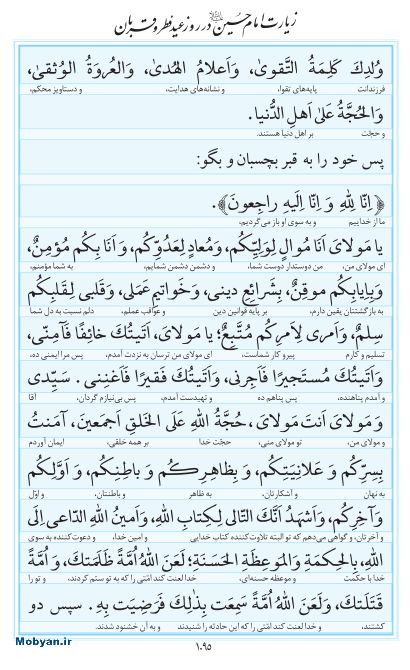 زیارت امام حسین در روز عید فطر و قربان
وُلدِكَ كَلِمَةُ التَّقوىٰ، وَاَعلامُ الهُدىٰ، وَالعُروَةُ الوُثقىٰ،
فرزندانت پایه‌های تقوا، و نشانه‌های هدایت، و دستاویز محکم،
وَالحُجَّةُ عَلىٰ اَهلِ الدُّنيا.
و حجّت بر اهل دنیا هستند.
پس خود را به قبر بچسبان و بگو:
﴿اِنّا لِلّٰهِ وَ اِنّا اِلَيهِ راجِعونَ﴾.
ما از خداییم و به سوی او باز می‌گردیم،
يا مَولایَ اَنَا مُوالٍ لِوَلِيِّكُم، وَمُعادٍ لِعَدُوِّكُم، وَ اَنَا بِكُم مُؤمِنٌ،
ای مولای من، من دوستدار دوست شما، و دشمن دشمن شمایم، به شما مؤمنم،
وَبِاِيابِكُم موقِنٌ، بِشَرايِعِ دينی، وَخَواتيمِ عَمَلی، وَقَلبی لِقَلبِكُم
به بازگشتتان یقین دارم، بر پایه قوانین دین و عواقب عملم، دلم نسبت به دل شما
سِلمٌ، وَاَمری لِاَمرِكُم مُتَّبِعٌ؛ يا مَولایَ، اَتَيتُكَ خائِفًا فَآمِنّی،
تسلیم و کارم پیرو کار شماست، ای مولای من ترسان به نزدت آمدم، پس مرا ایمنی ده،
وَ اَتَيتُكَ مُستَجيرًا فَاَجِرنی، وَاَتَيتُكَ فَقيرًا فَاَغنِنی. سَيِّدی
و آمدم پناهنده، پس پناهم ده و تهیدست آمدم، پس بی‌نیازم گردان، آقا
وَ مَولایَ اَنتَ مَولایَ، حُجَّةُ اللهِ عَلَی الخَلقِ اَجمَعينَ، آمَنتُ
و مولای من، تو مولای منی، حجّت خدا بر همه خلقی، ایمان آوردم
بِسِرِّكُم وَ عَلانِيَتِكُم، وَ بِظاهِرِكُم وَ باطِنِكُم، وَ اَوَّلِكُم
به نهان و آشکارتان، به ظاهر و باطنتان، و اوّل
وَآخِرِكُم، وَاَشهَدُ اَنَّكَ التّالی لِكِتابِ اللهِ، وَاَمينُ اللهِ الدّاعی اِلَی
و آخرتان، و گواهی می‌دهم که تو البته تلاوت‌کننده کتاب خدایی و امین خدا، و دعوت کننده به سوی
اللهِ، بِالحِكمَةِ وَالمَوعِظَةِ الحَسَنَةِ؛ لَعَنَ اللهُ اُمَّةً ظَلَمَتكَ، وَ اُمَّةً
خدا با حکمت و موعظه حسنه‌ای، خدا لعنت کند امّتی را که به تو ستم کردند، و تو را
قَتَلَتكَ، وَلَعَنَ اللهُ اُمَّةً سَمِعَت بِذٰلِكَ فَرَضِيَت بِهِ. سپس دو
کشتند، و خدا لعنت کند امّتی را که این حادثه را شنیدند و به آن خشنود شدند.
۱۰۹۵
Mobyan.ir